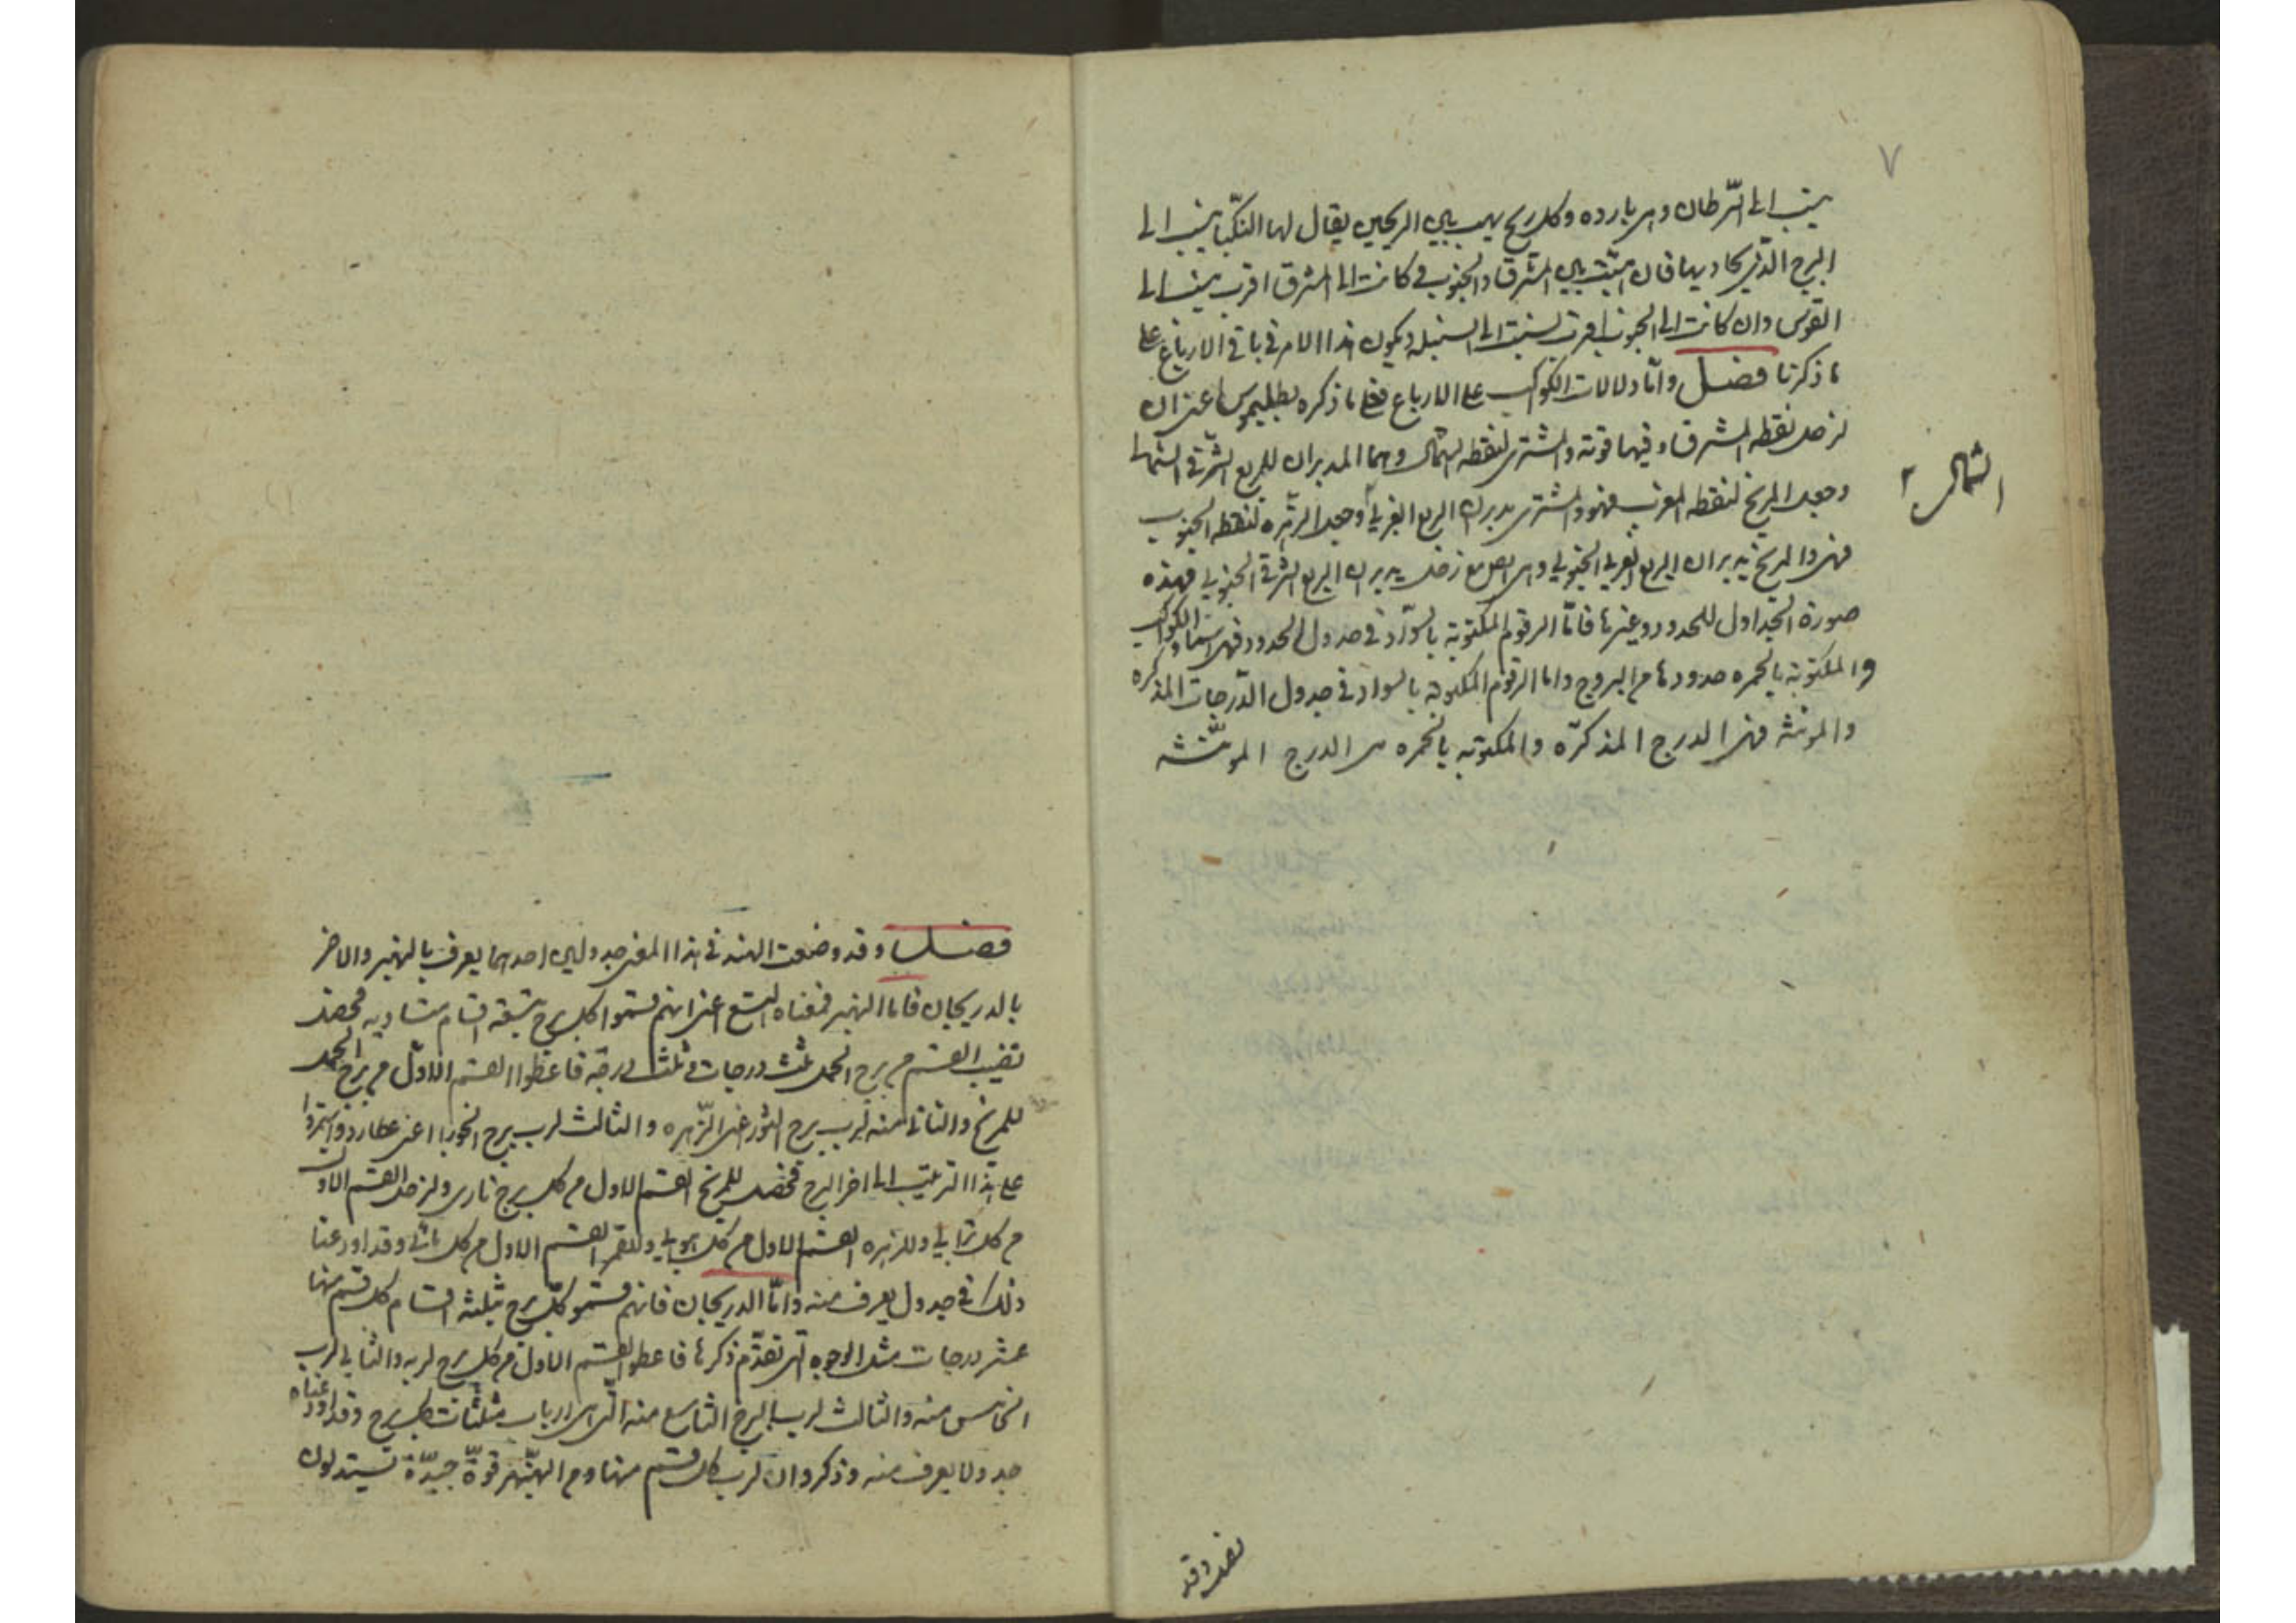 ٧
ينسب الى السّرطان وهى بارده وكل ريح يهب بين الريحين يقال لها النكبا ينسب الى
البرج الذى يحاديها فان هبّت بين المشرق والجنوب فكانت الى المشرق اقرب ينسب الى
القوس وان كانت الى الجنوب اقرب نسبت الى السنبله ويكون هذا الامر فى باقى الارباع على
ما ذكرنا فصل وامّا دلالات الكواكب على الارباع فعلى ما ذكره بطليموس اعنى ان
لزحل نقطه المشرق وفيها قوته والمشترى لنقطه الشمال وهما المدبران للربع الشرقى الشمالى
وجعل المريخ لنقطه المغرب فهو والمشترى يدبران الربع الغربى وجعل الزهره لنقطه الجنوب
الشمالى
فهى والمريخ يدبران الربع الغربى الجنوبى وهى ايضا مع زحل يدبران الربع الشرقى الجنوبى فهذه
صورة الجداول للحدود وغيرها فامّا الرقوم المكتوبة بالسّواد فى جدول الحدود فهى اسماء الكواكب
والمكتوبة بالحمره حدودها من البروج واما الرقوم المكتوبة بالسواد فى جدول الدّرجات المذكره
والمونثه فهى الدرج المذكرّه والمكتوبه بالحمره هى الدرج المونّثه
فصل وقد
فصل وقد وضعت الهند فى هذا المعنى جدولين احدهما يعرف بالنهبهر والاخر
بالدريجان فاما النهبهر فمعناه التسع اعنى انهم قسموا كل برج بتسعة اقسام متساويه فحصل
نصيب القسم من برج الحمل ثلث درجات وثلث درجة فاعطوا القسم الاوّل من برج الحمل
للمريخ والثانى منه لرب برج الثور اعنى الزّهره والثالث لرب برج الجوزا اعنى عطارد واستمروا
على هذا الترتيب الى اخر البرج فحصل للمريخ القسم الاول من كل برج نارى ولزحل القسم الاول
من كل ترابى وللزهره القسم الاول من كل هوايى وللقمر القسم الاول من كل مائى وقد اودعنا
ذلك فى جدول يعرف منه وامّا الدريجان فانهم قسمو كلّ برج بثلثه اقسام كل قسم منها
عشر درجات مثل الوجوه التى تقدّم ذكرها فاعطوا القسم الاول من كل برج لربه والثانى لرب
الخامس منه والثالث لرب البرج التاسع منه التى هى ارباب مثلثات كل برج وقد اودعناه
جدولا يعرف منه وذكروا ان لرب كل قسم منها ومن النهبهر قوّة جيدّة يستدلون